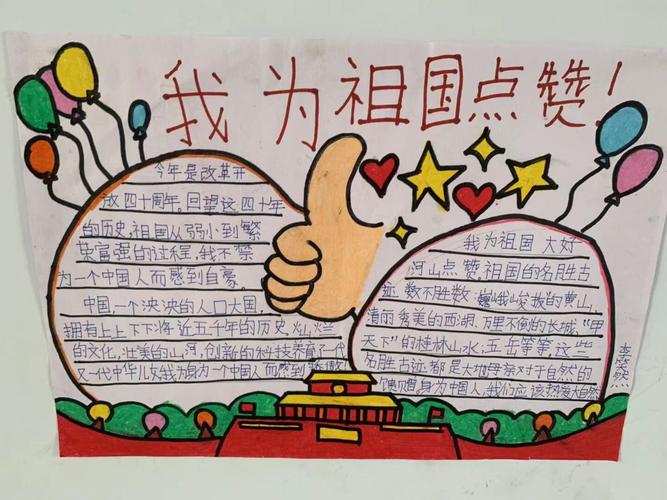 我为祖国点赞！
今年是改革开
放四十周年。回望这四十年
的历史，祖国从弱小到繁
荣富强的过程，我不禁
为一个中国人而感到自豪。
中国一个泱泱的人口大国，
拥有上上下下将近五千年的历史，灿烂
的文化，壮美的山河，创新的科技养育了一个
又一代中华儿女，我为身为一个中国人而感到骄傲！
我为祖国大好
河山点赞祖国的名胜古
迹数不胜数：巍峨峻拔的黄山，
清丽秀美的西湖，万里不倒的长城，"甲
天下"的桂林山水；五岳等等，这些
名胜古迹都是大地母亲对于自然的
馈赠身为中国人，我们应该热爱大自然